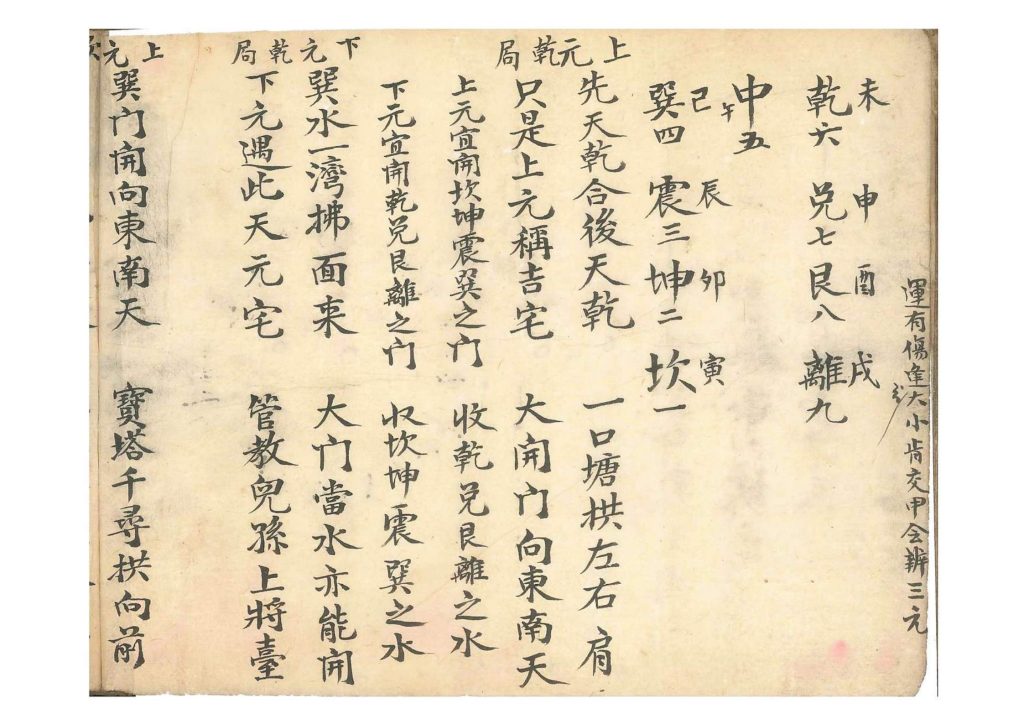 運有傷逢大小肯交甲会辨三元
未 申 酉 戌
乾六 兌七 艮八 離九
中五
己午 辰 卯 寅
巽四 震三 坤二 坎一
上元乾局
先天乾合後天乾 一口塘拱左右肩
只是上元稱吉宅 大開门向東南天
上元宜開坎坤震巽之门 收乾兌艮離之水
下元宜開乾兌艮離之门 収坎坤震巽之水
下元乾局
巽水一灣拂面来 大门當水亦能開
下元遇此天元宅 管教兒孫上將臺
上元
巽门開向東南天 寶塔千尋拱向前